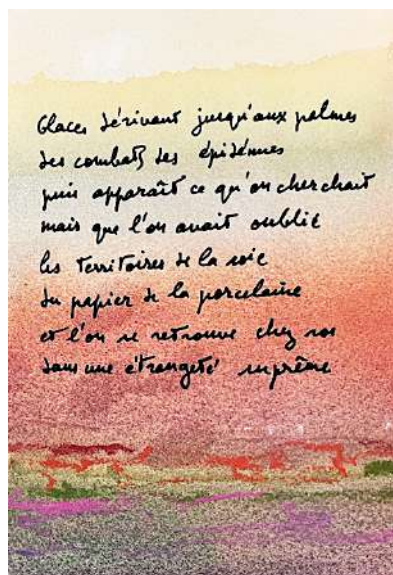 Glaces dérivant jusqu'aux palmes
des combats des épidémies
puis apparaît ce qu'on cherchait
mais que l'on avait oublié
les territoires de la soie
du papier de la porcelaine
et l'on se retrouve chez soi
dans une étrangeté suprême